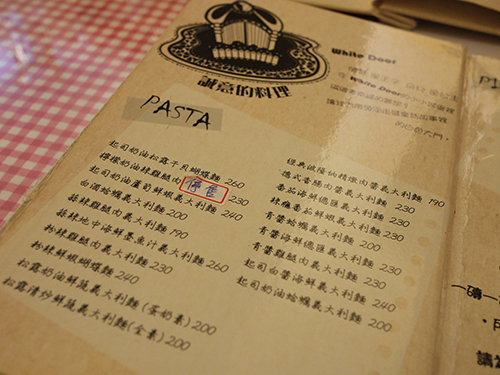 White Door
誠意的料理
PASTA
起司奶油松露干貝蝴蝶麵 260
檸檬奶油辣雞腿肉 停售 230
起司奶油蘆筍鮮蝦義大利麵 240
白酒蛤蠣義大利麵 200
蒜辣雞腿肉義大利麵 190
蒜辣地中海鮮墨魚汁義大利麵 230
粉辣雞腿肉義大利麵 200
粉辣鮮蝦蝴蝶麵 240
松露奶油鮮蔬義大利麵 (蛋奶素) 200
松露清炒鮮蔬義大利麵 (全素) 200
經典波隆納精燉肉醬義大利麵 190
德式香腸肉醬義大利麵 230
番茄海鮮總匯義大利麵 230
辣雞番茄鮮蝦義大利麵 230
青醬蛤蠣義大利麵 200
青醬海鮮總匯義大利麵 230
青醬雞腿肉義大利麵 230
起司白醬海鮮義大利麵 240
起司奶油蛤蠣義大利麵 200
PI
一磚一
請